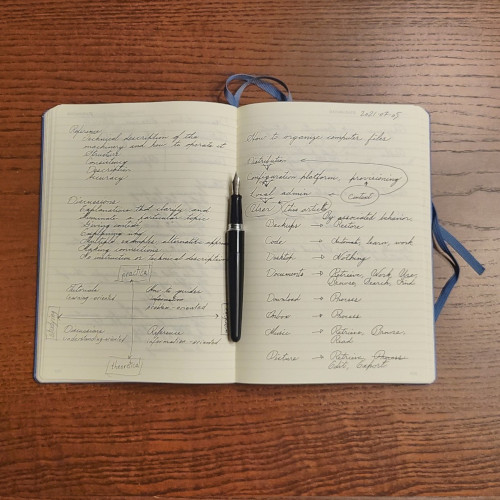 Reference
Technical description of the
machinery and how to operate it
Structure
Consistency
Description
Accuracy
Discussions
Explanations that clarify and
illuminate a particular topic
Giving context
Explaining why
Multiple examples, alternate
Making connections
No instruction or technical description
practical
Tutorials
learning-oriented
How-to guides
oriented
studying
Discussions
understanding-oriented
Reference
information-oriented
theoretical
2021-07-05
How to organize computer files
Distribution
Configuration platform, provisioning
Local admin
Context
User This article
By associated behavior
Backups → Restore
Code → learn, work
Desktop → Nothing
Documents → Retrieve, Work, Use,
Browse, Search, Find
Download → Process
Inbox → Process
Music → Retrieve, Browse,
Read
Picture → Retrieve, Process
Edit, Export